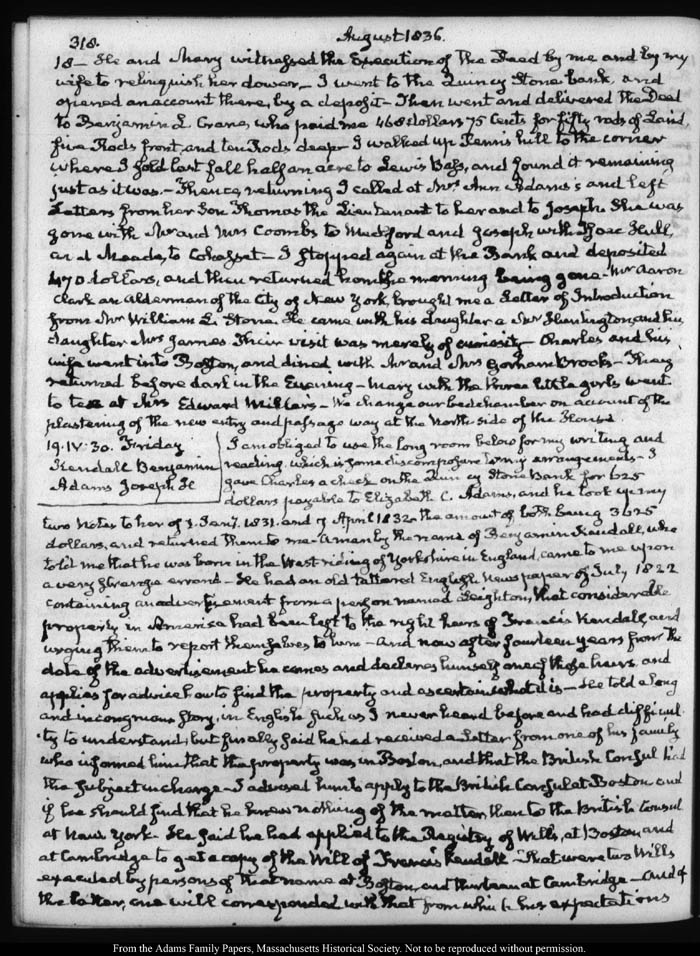 318.
August 1836.
18— He and Mary witnessed the Execution of the Deed by me and by my
wife to relinquish her dower— I went to the Quincy Stone bank, and
opened an account there, by a deposit— Then went and delivered the Deed
to Benjamin L. Crane, who paid me 468 dollars 75 Cents for fifty rods of Land,
five Rods front, and ten Rods deep— I walked up Penns hill to the corner
where I sold last fall half an acre to Lewis Bass, and found it remaining
just as it was.— Thence returning I called at Mrs. Ann Adams's and left
Letters from her Son Thomas the Lieutenant to her and to Joseph. She was
gone with Mr and Mrs Coombs to Medford and Joseph with Isaac Hull,
and Meade, to Cohasset— I stopped again at the Bank and deposited
470 dollars, and then returned home the morning being gone— Mr Aaron
Clark an Alderman of the City of New York, brought me a Letter of Introduction
from Mr William L. Stone. He came with his daughter a Mrs Huntington, and his
daughter Mrs James. Their visit was merely of curiosity— Charles and his
wife went into Boston, and dined with Mr and Mrs Gorham Brooks— They
returned before dark in the Evening— Mary with the three little girls went
to tea at Mrs Edward Miller's— We change our bedchamber on account of the
plastering of the new entry and passage way at the North side of the House.
19. IV. 30. Friday
Kendall Benjamin
Adams Joseph H
I am obliged to use the long room below for my writing and
reading, which is some discomposure to my arrangements— I
gave Charles a check on the Quincy Stone Bank for 625
dollars payable to Elizabeth C. Adams, and he took up my
two Notes to her of 1. Jany. 1831. and 7 April 1832 the amount of both being 3625
dollars, and returned them to me. A man by the name of Benjamin Kendall, who
told me that he was born in the West riding of Yorkshire in England, came to me upon
a very strange errand— He had an old tattered English Newspaper of July 1822
containing an advertisement from a person named Leighton, that considerable
property in America had been left to the right heirs of Francis Kendall, and
urging them to report themselves to him— and now after fourteen years from the
date of the advertisement he comes and declares himself one of those heirs, and
applies for advice how to find the property and ascertain what it is— He told a long
and incongruous story, in English such as I never heard before and had difficul-
ty to understand, but finally said he had received a Letter from one of his family
who informed him that the property was in Boston, and that the British Consul had
the subject in charge— I advised him to apply to the British Consul at Boston and
if he should find that he knew nothing of the matter, then to the British Consul
at New York. He said he had applied to the Registry of Wills, at Boston, and
at Cambridge to get a copy of the Will of Francis Kendall— That were two Wills
executed by persons of that name at Boston, and thirteen at Cambridge— and of
the latter, one will corresponded with that from which his expectations
From the Adams Family Papers, Massachusetts Historical Society. Not to be reproduced without permission.